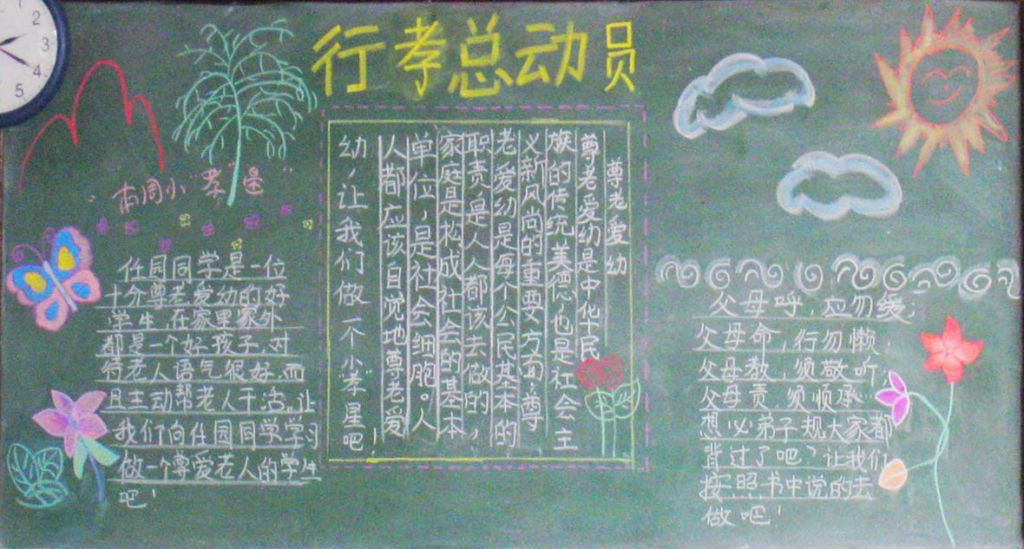 行孝总动员
本周小“孝星”
任园同学是一位
十分尊老爱幼的好
学生,在家里家外
都是一个好孩子,对
待老人语气很好,而
且主动帮老人干活。让
我们向任园同学学习
做一个尊爱老人的学生
吧!
尊老爱幼
尊老爱幼是中华民
族的传统美德,也是社会主
义新风尚的重要方面,尊
老爱幼是每个公民基本的
职责,是人人都该去做的,
家庭是构成社会的基本
单位,是社会细胞。人
人都应该自觉地尊老爱
幼,让我们做一个小“孝”星吧!
父母呼,应勿缓;
父母命,行勿懒;
父母教,须敬听,
父母责,须顺承…
想必弟子规大家都
背过了吧?让我们
按照书中说的去
做吧!
1
2
3
4
5